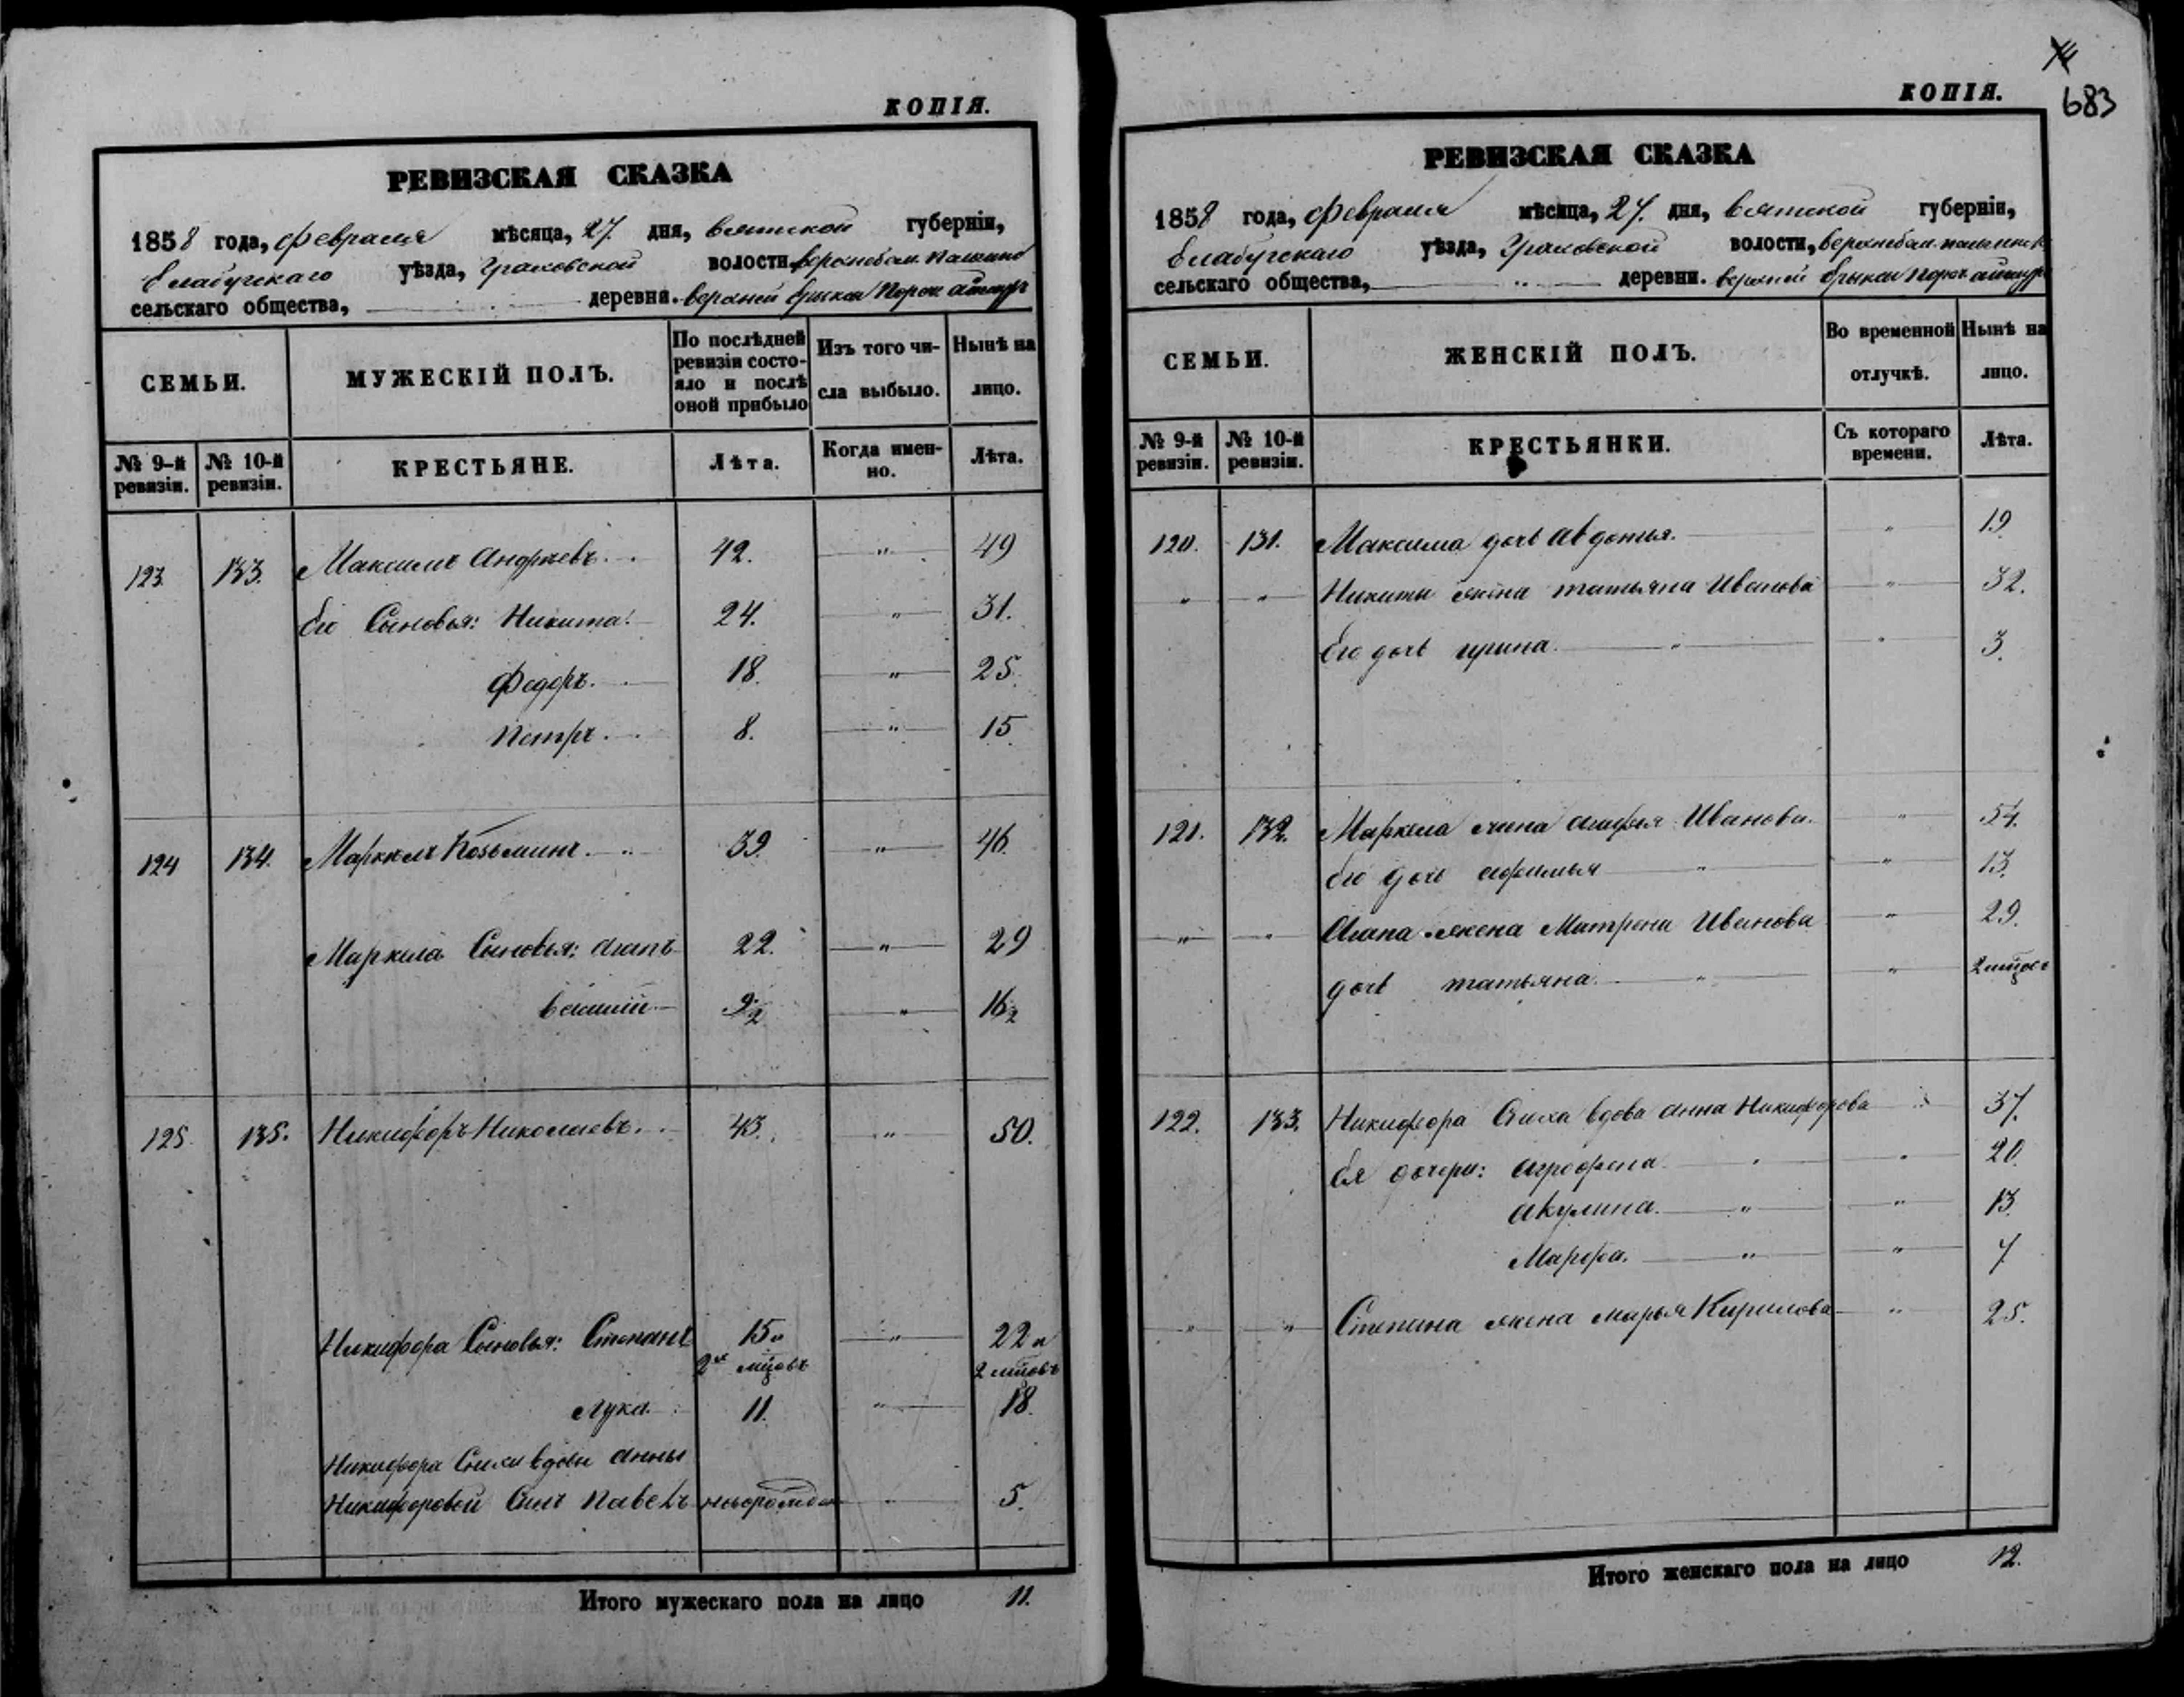 КОПІЯ.
РЕВИЗСКАЯ СКАЗКА
1858 года, февраля мѣсяца, 27. дня, вятской губерніи,
Елабугскаго уѣзда, Граховской волости,
сельскаго общества, деревни. верхней
СЕМЬИ. МУЖЕСКІЙ ПОЛЪ. По послѣдней ревизіи состояло и послѣ оной прибыло Изъ того числа выбыло. Нынѣ на лицо.
№ 9-й ревизіи. № 10-й ревизіи. КРЕСТЬЯНЕ. Лѣта. Когда именно. Лѣта.
123. 133. Максимъ Андреевъ. 42. " 49
Его Сыновья: Никита. 24. " 31.
Федоръ. 18. " 25.
Петръ. 8. " 15
124 134. Маркелъ Козьминъ. 39. " 46.
Маркела Сыновья: Агапъ 22. " 29
Василій 9½ " 16½
125. 135. Никифоръ Николаевъ. 43. " 50.
Никифора Сыновья: Степанъ 15 и " 22 и
2хъ мцовъ 2 мцовъ
Лука 11. " 18.
Никифора Снохи вдовы Анны
Никифоровой Сынъ Павелъ новорожден " 5.
Итого мужескаго пола на лицо 11.
683
КОПІЯ.
РЕВИЗСКАЯ СКАЗКА
1858 года, февраля мѣсяца, 27. дня, вятской губерніи,
Елабугскаго уѣзда, Граховской волости,
сельскаго общества, деревни. верхней
СЕМЬИ. ЖЕНСКІЙ ПОЛЪ. Во временной отлучкѣ. Нынѣ на лицо.
№ 9-й ревизіи. № 10-й ревизіи. КРЕСТЬЯНКИ. Съ котораго времени. Лѣта.
120. 131. Максима дочь Авдотья. " 19
" " Никиты жена татьяна Иванова " 32.
Его дочь ирина " " 3.
121. 132. Маркела жена Иванова. " 54.
Его дочь афимья " " 13.
" " Агапа жена Матрена Иванова " 29.
дочь татьяна. " " 2 мцовъ
122. 133. Никифора Сноха вдова анна Никифорова " 37.
Ея дочери: агрофена " " 20.
акулина. " " 13.
Марфа. " " 7
" " Степана жена марья Кирилова " 25.
Итого женскаго пола на лицо 12.